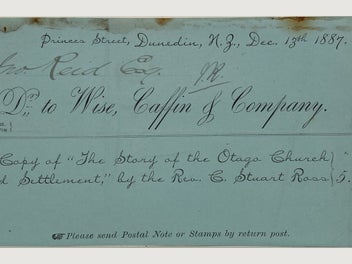 Princes Street, Dunedin, N.Z., Dec. 13th 1887.
Jno Reid Esq. J.R.
Dr. to Wise, Caffin & Company.
Copy of "The Story of the Otago Church "
d Settlement," by the Rev. C. Stuart Ross } 5.
☞ Please send Postal Note or Stamps by return post.